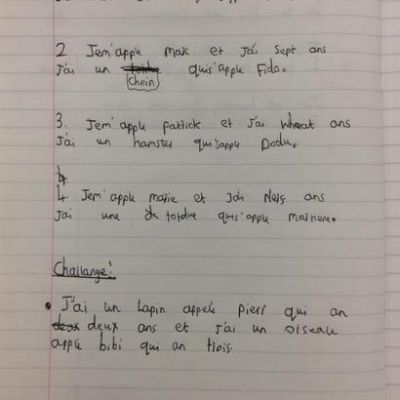 2 Jem'apple max et Jái Sept ans
Jái un chein quis'apple Fido.
3. Jem'apple patrick et J'ai wheat ans
J'ai un hamster qui sapple Dodu.
4 Jem'apple marie et ans
Jai une tordue quis'apple
Challange:
• J'ai un Lapin appele pierr qui an
deux ans et J'ai un oiseau
apple bibi qui an